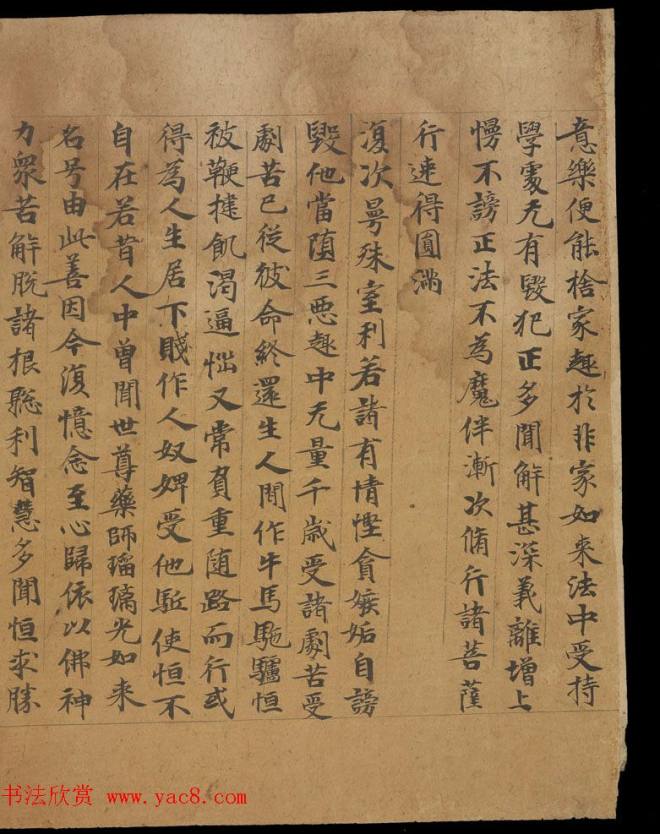 意樂便能捨家趣於非家如来法中受持
學處无有毀犯正多聞解甚深義離增上
慢不謗正法不為魔伴漸次脩行諸菩薩
行速得圓滿
復次曼殊室利若諸有情慳貪嫉妬自讃
毀他當墮三惡趣中无量千歳受諸劇苦受
劇苦已從彼命終還生人間作牛馬駞驢恒
被鞭撻飢渴逼惱又常負重随路而行或
得為人生居下賤作人奴婢受他駈使恒不
自在若昔人中曾聞世尊藥師瑠璃光如来
名号由此善因今復憶念至心歸依以佛神
力衆苦解脫諸根聡利智慧多聞恒求勝
书法欣赏 www.yac8.com